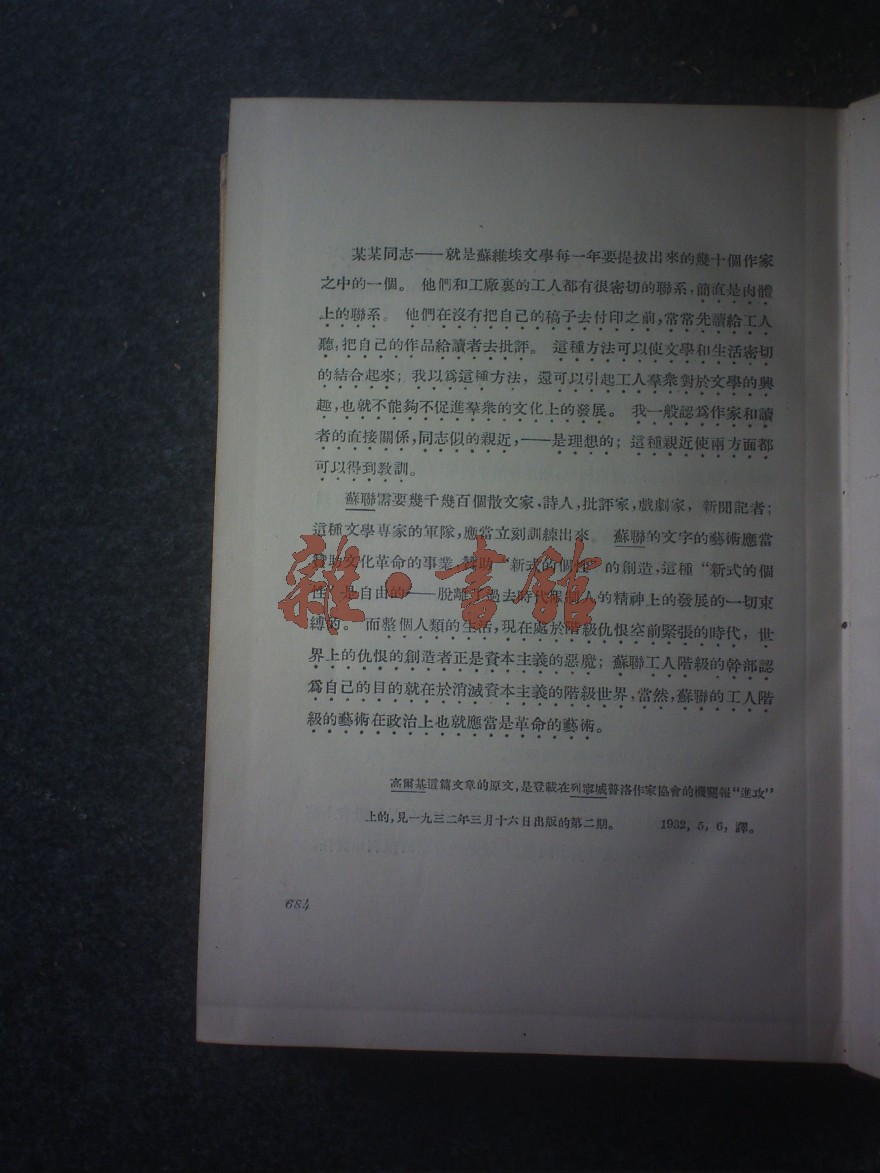 某某同志——就是蘇維埃文學每一年要提拔出來的幾十個作家
之中的一個。 他們和工廠裏的工人都有很密切的聯系,簡直是肉體
上的聯系。 他們在沒有把自己的稿子去付印之前,常常先讀給工人
聽,把自己的作品給讀者去批評。 這種方法可以使文學和生活密切
的結合起來; 我以爲這種方法, 還可以引起工人羣衆對於文學的興
趣,也就不能夠不促進羣衆的文化上的發展。 我一般認爲作家和讀
者的直接關係,同志似的親近,——是理想的; 這種親近使兩方面都
可以得到敎訓。
蘇聯需要幾千幾百個散文家,詩人,批評家,戲劇家, 新聞記者;
這種文學專家的軍隊,應當立刻訓練出來。 蘇聯的文字的藝術應當
贊助文化革命的事業,贊助“新式的個性”的創造,這種“新式的個
性”是自由的——脫離了過去時代 個人的精神上的發展的一切束
縛的。 而整個人類的生活,現在處於階級仇恨空前緊張的時代, 世
界上的仇恨的創造者正是資本主義的惡魔; 蘇聯工人階級的幹部認
爲自己的目的就在於消滅資本主義的階級世界,當然,蘇聯的工人階
級的藝術在政治上也就應當是革命的藝術。
高爾基這篇文章的原文,是登載在列寧城普洛作家協會的機關報“進攻”
上的,見一九三二年三月十六日出版的第二期。 1932, 5, 6, 譯。
684
雜·書館